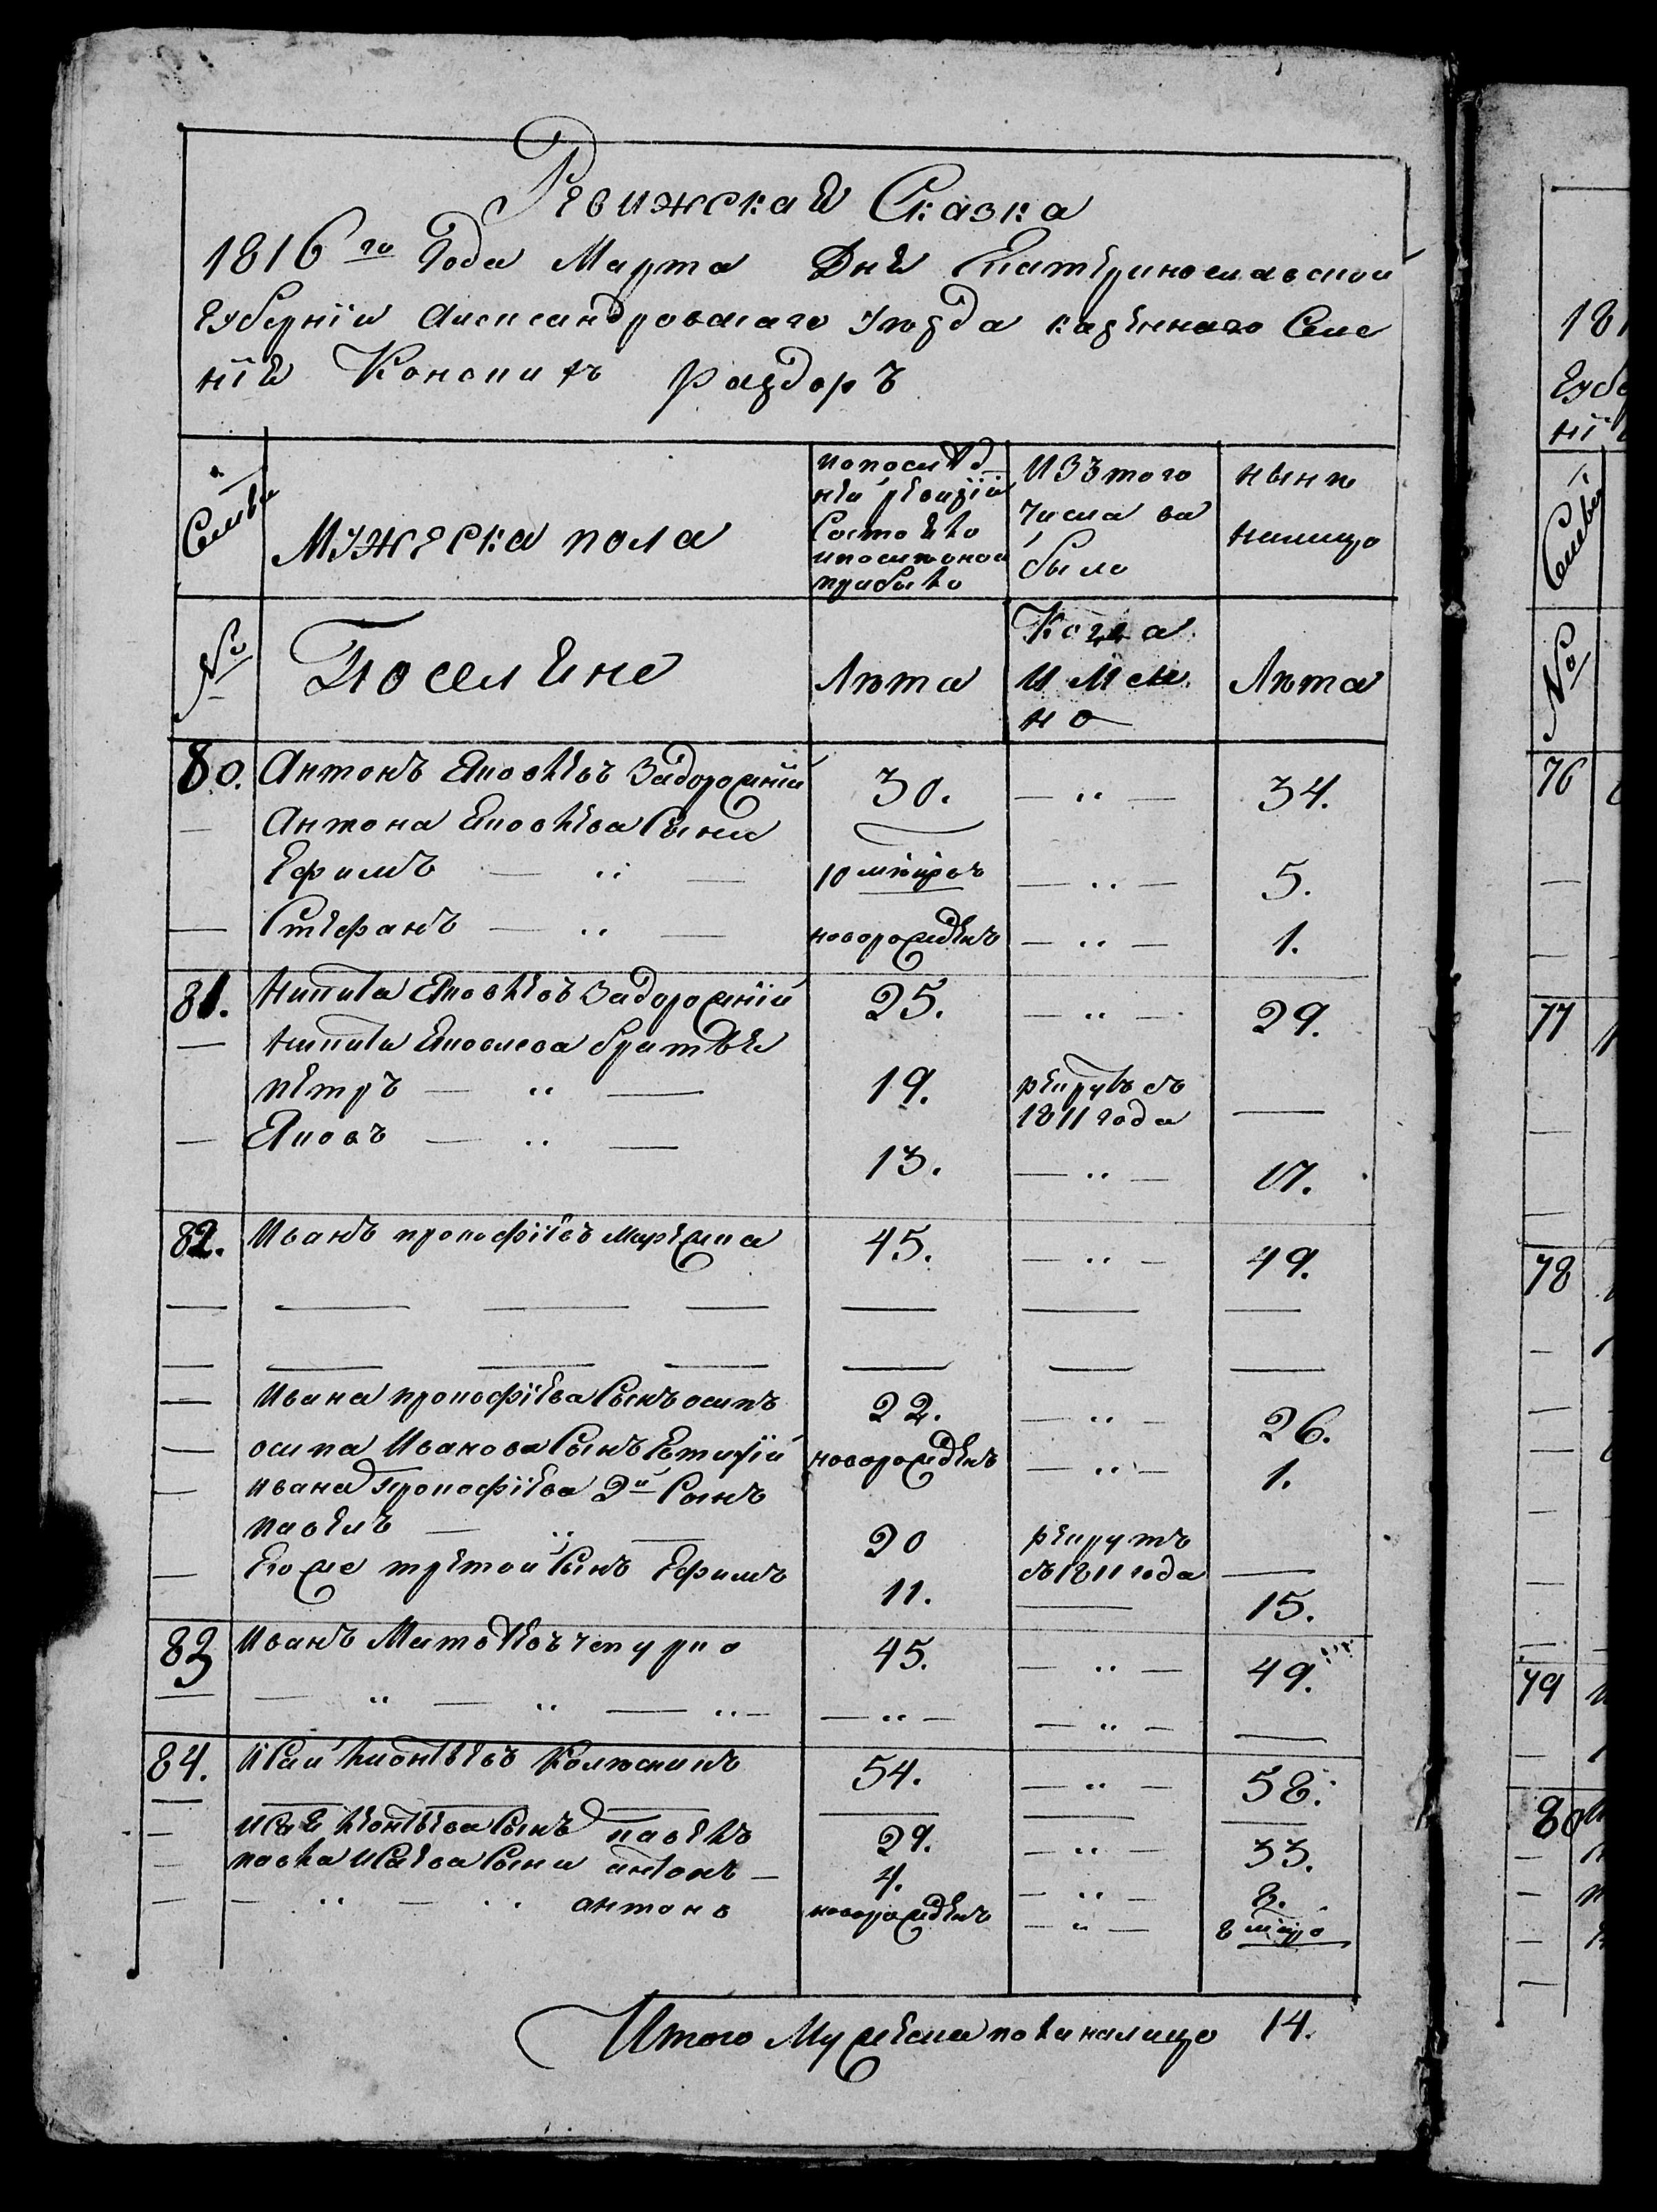 Ревижская Сказка
1816го Года Марта Дня Екатеринославской
Губернїи Александровскаго уѣзда казенного Селе
нїя Конскихъ раздоръ
Семьи
Мужеска пола
попослѣд
ней ревизїи
Состояло
ипослѣоной
прибыло
Изътого
числа вы
было
нынѣ
налицо
№
Поселяне
Лѣта
Когда
имян
но
Лѣта
80. Антонъ Яковлевъ Задорожнїй 30. — „ — 34.
— Антона Яковлева Сыни
Ефимъ — „ — 10 мѣсяцовъ — „ — 5.
— Стефанъ — „ — новорожденъ — „ — 1.
81. Никита Яковлевъ Задорожнїй 25. — „ — 29.
— Никиты Яковлева братья
петръ — „ — 19. рекрутъ съ
1811 года —
— Яковъ — „ — 13. — „ — 17.
82. Иванъ прокофїевъ Мережка 45. — „ — 49.
— — — — — — —
— — — — — — —
— Ивана прокофїева Сынъ осипъ 22. — „ — 26.
— осипа Иванова Сынъ Евтифїй новорожденъ — „ — 1.
— Ивана Прокофїева 2й Сынъ
павелъ — „ — 20 рекрутъ
съ 1811 года —
— Евоже третой Сынъ Ефимъ 11. — 15.
83 Иванъ Матвѣевъ чепурко 45. — „ — 49.
— — „ — „ — „ — — „ — — „ — —
84. Исай Леонтьевъ 54. — „ — 58.
— — — — — — —
— Исая Леонтьева Сынъ павелъ 29. — „ — 33.
— павла Исаева Сыни антонъ — 4. — „ — 8.
— — „ — „ антонъ новорожденъ — „ — 8 мѣсяцо
Итого Мужеска пола налицо 14.
181
Губе
нї
Семьи
№
76
77
78
79
80